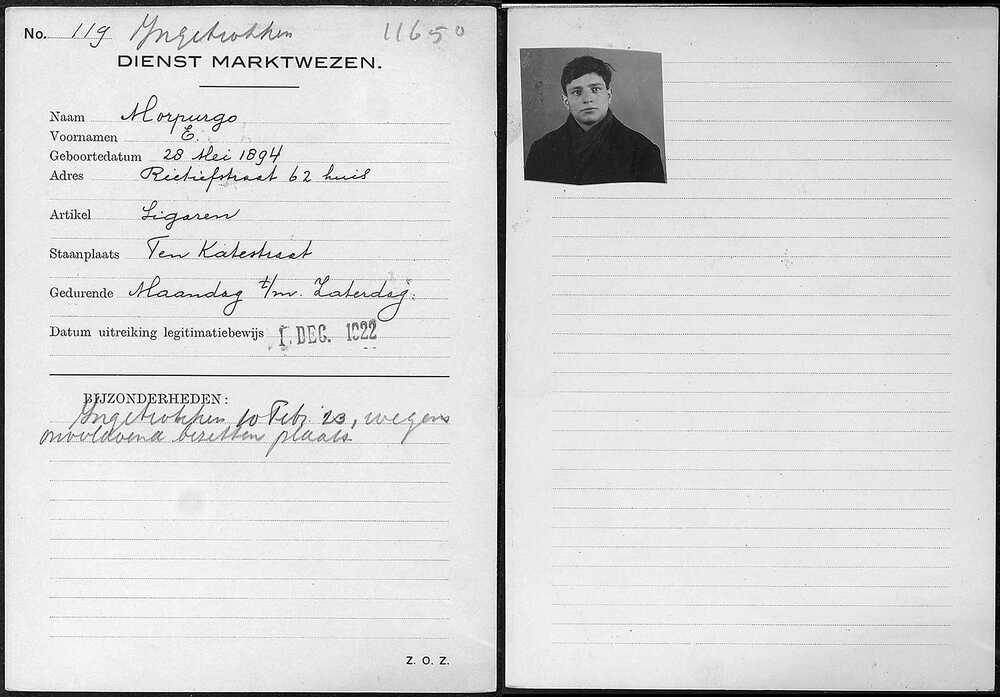 No. 119 Yngetrokken 11650
DIENST MARKTWEZEN.
Naam Morpurgo
Voornamen E.
Geboortedatum 28 Mei 1894
Adres Rietiefstraat 62 huis
Artikel Sigaren
Staanplaats Ten Katestraat
Gedurende Maandag t/m. Zaterdag.
Datum uitreiking legitimatiebewijs 1. DEC. 1922
BIJZONDERHEDEN:
Yngetrokken 10 Febr. 23, wegens
onvoldoend bezetten plaats
Z. O. Z.